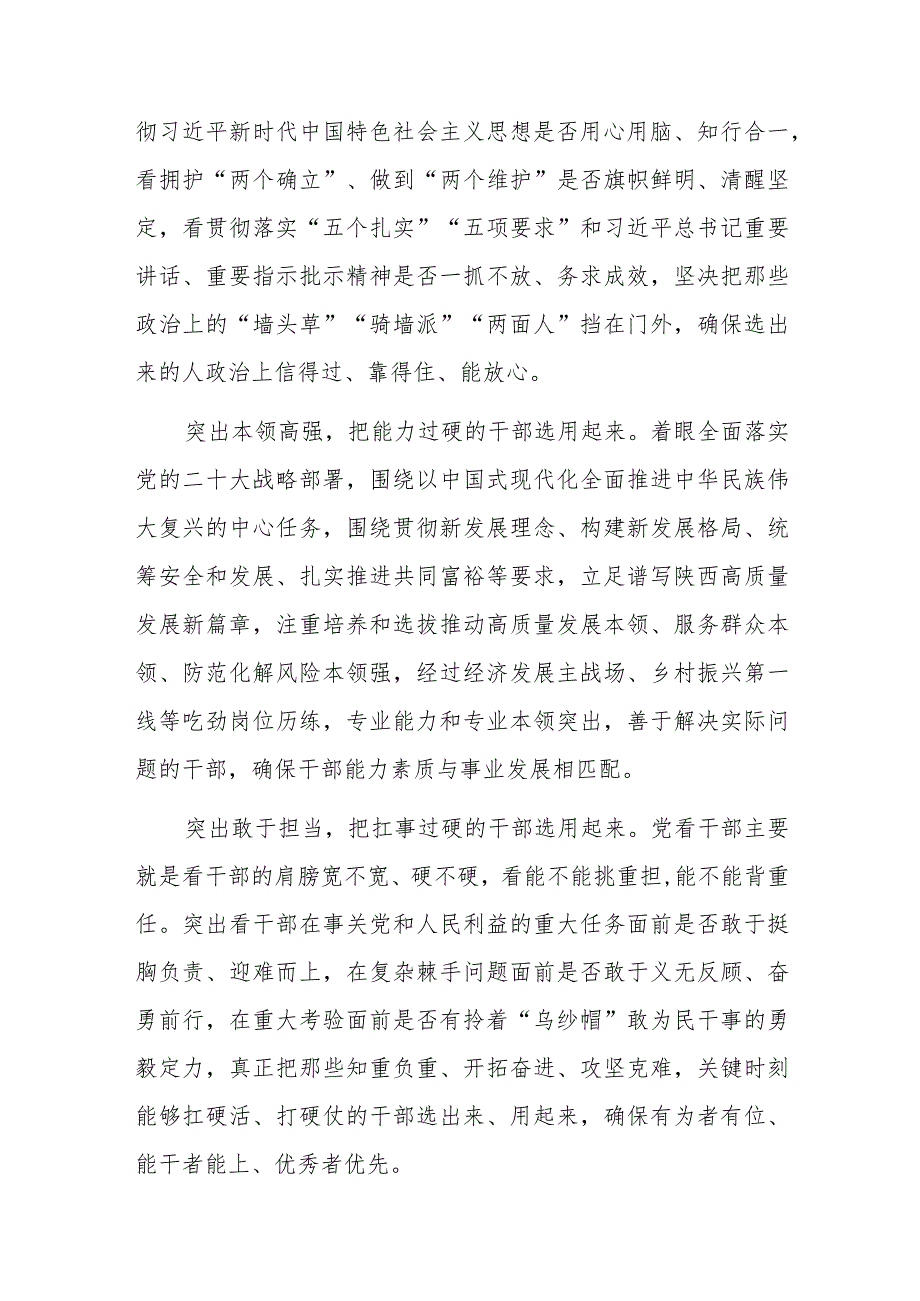 彻习近平新时代中国特色社会主义思想是否用心用脑、知行合一，
看拥护“两个确立”、做到“两个维护”是否旗帜鲜明、清醒坚
定，看贯彻落实“五个扎实”“五项要求”和习近平总书记重要
讲话、重要指示批示精神是否一抓不放、务求成效，坚决把那些
政治上的“墙头草”“骑墙派”“两面人”挡在门外，确保选出
来的人政治上信得过、靠得住、能放心。
突出本领高强，把能力过硬的干部选用起来。着眼全面落实
党的二十大战略部署，围绕以中国式现代化全面推进中华民族伟
大复兴的中心任务，围绕贯彻新发展理念、构建新发展格局、统
筹安全和发展、扎实推进共同富裕等要求，立足谱写陕西高质量
发展新篇章，注重培养和选拔推动高质量发展本领、服务群众本
领、防范化解风险本领强，经过经济发展主战场、乡村振兴第一
线等吃劲岗位历练，专业能力和专业本领突出，善于解决实际问
题的干部，确保干部能力素质与事业发展相匹配。
突出敢于担当，把扛事过硬的干部选用起来。党看干部主要
就是看干部的肩膀宽不宽、硬不硬，看能不能挑重担,能不能背重
任。突出看干部在事关党和人民利益的重大任务面前是否敢于挺
胸负责、迎难而上，在复杂棘手问题面前是否敢于义无反顾、奋
勇前行，在重大考验面前是否有拎着“乌纱帽”敢为民干事的勇
毅定力，真正把那些知重负重、开拓奋进、攻坚克难，关键时刻
能够扛硬活、打硬仗的干部选出来、用起来，确保有为者有位、
能干者能上、优秀者优先。